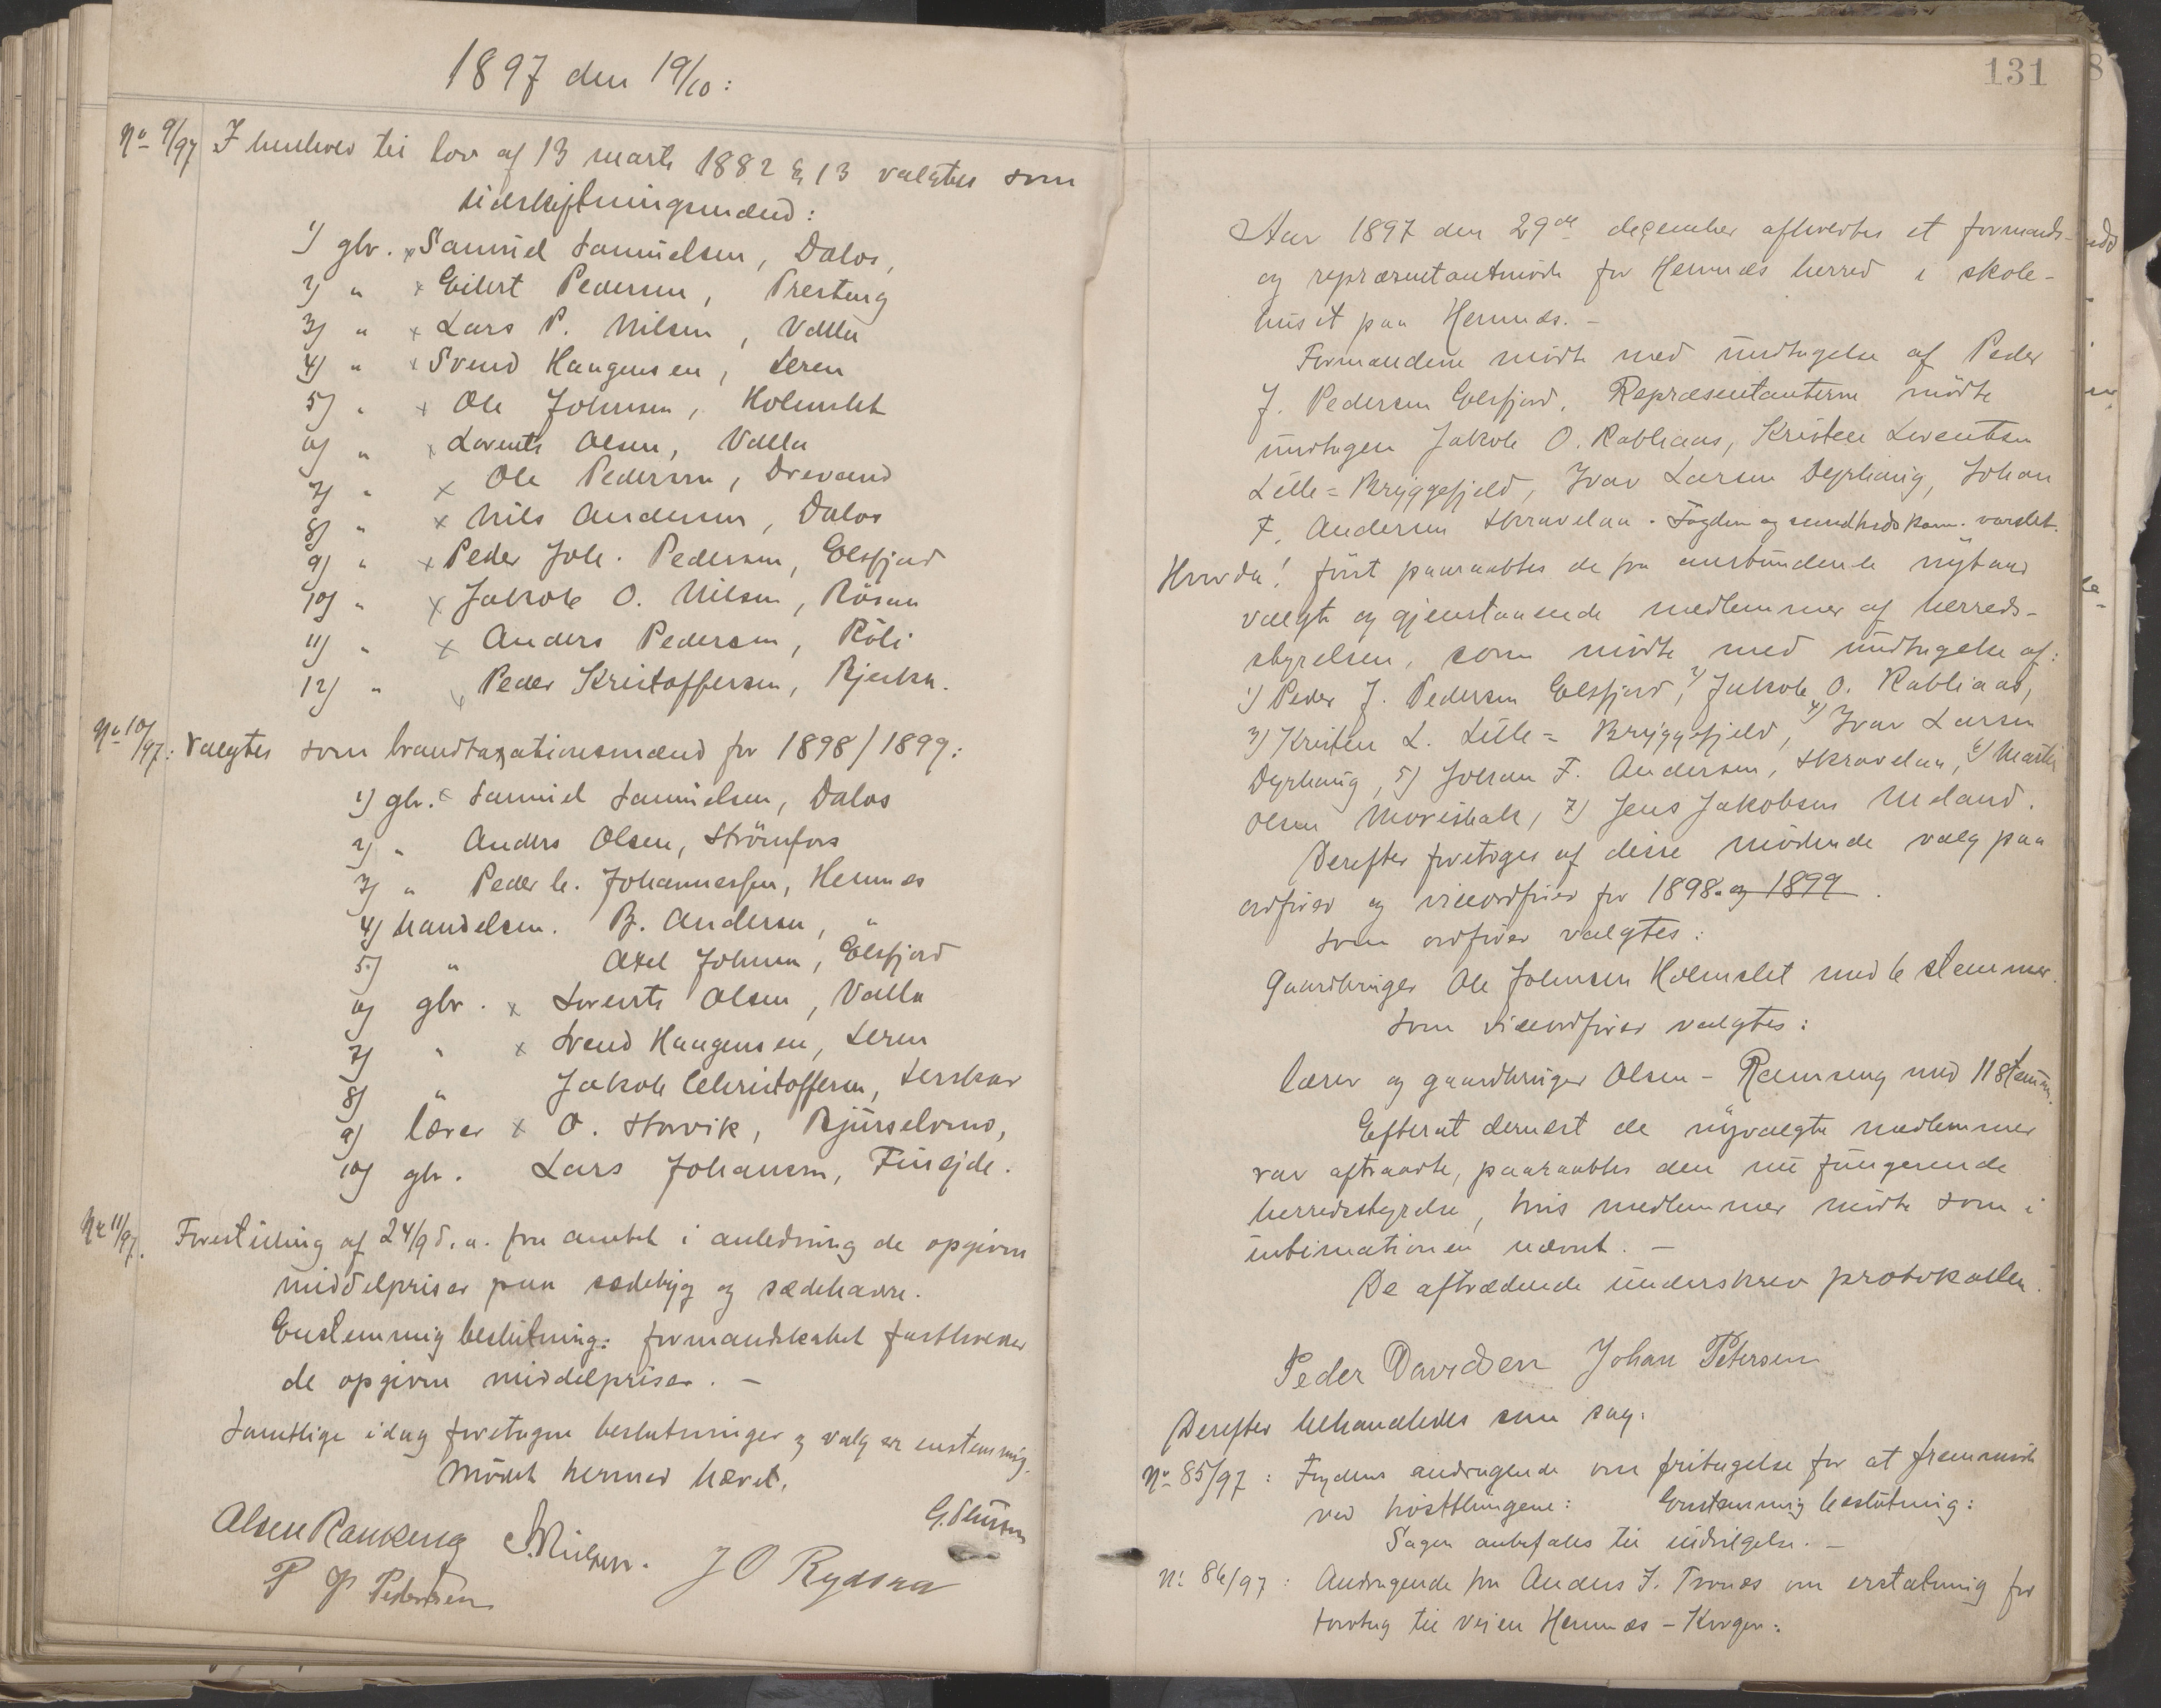 1897 den 19/10:
No 9/97 I henhold til lov af 13 marts 1882 § 13 valgtes som
udskiftningsmænd:
1) gbr. x Samuel Samuelsen, Dalos,
2) " x Eilert Pedersen, Presteng
3) " x Lars P. Nilsen, Valla
4) " x Svend Haugensen, Leren
5) " x Ole Johnsen, Holmslet
6) " x Lorents Olsen, Valla
7) " x Ole Pedersen, Drevand
8) " x Nils Andersen, Dalos
9) " x Peder Joh. Pedersen, Elsfjord
10) " x Jakob O. Nilsen, Røsaa
11) " x Anders Pedersen, Røli
12) " x Peder Kristoffersen, Bjerka.
No 10/97: Valgtes som brandtaxationsmænd for 1898/1899:
1) gbr. x Samuel Samuelsen, Dalos
2) " Anders Olsen, Strømfors
3) " Peder C. Johannessen, Hemnes
4) handelsm. B. Andersen, "
5) " Axel Johnsen, Elsfjord
6) gbr. x Lorents Olsen, Valla
7) " x Svend Haugensen, Leren
8) " Jakob Christoffersen, Lerskar
9) lærer x O. Storvik, Bjurselvmo,
10) gbr. Lars Johansen, Finejde.
No 11/97. Forestilling af 24/9 d.a. fra amtet i anledning de opgivne
middelpriser paa sædebyg og sædehavre.
Enstemmig beslutning: formandskabet fastholder
de opgivne middelpriser. –
Samtlige idag foretagne beslutninger og valg er enstemmig.
Mødet hermed hævet.
Olsen Ranseng S. Nilsen. G. Steinson
P P Pedersen J O Rydsaa
131
Aar 1897 den 29de december afholdtes et formands-
og repræsentantmøde for Hemnæs herred i skole-
huset paa Hemnæs. –
Formændene mødte med undtagelse af Peder
J. Pedersen Elsfjord. Repræsentanterne mødte
undtagen Jakob O. Rabliaas, Kristen Lorentsen
Lille=Bryggefjeld, Ivar Larsen Dyrhaug, Johan
F. Andersen Skravelaa. Fogden og sundhedskom. varslet.
Hvorda! først paaraabtes de fra anstundende nytaar
valgte og gjenstaaende medlemmer af herreds-
styrelsen, som mødte med undtagelse af:
1) Peder J. Pedersen Elsfjord, 2) Jakob O. Rabliaas,
3) Kristen L. Lille=Bryggefjeld, 4) Ivar Larsen
Dyrhaug, 5) Johan F. Andersen, Skravelaa, 6) Martin
Olsen Movisbak, 7) Jens Jakobsen Uleland.
Derefter foretoges af disse mødende valg paa
ordfører og viceordfører for 1898 og 1899.
Som ordfører valgtes:
Gaardbruger Ole Johnsen Holmslet med 6 stemmer.
Som viceordfører valgtes:
lærer og gaardbruger Olsen – Ranseng med 11 stemm.
Efterat dernæst de nyvalgte medlemmer
var aftraadte, paaraabtes den nu fungerende
herredsstyrelse, hvis medlemmer mødte som i
intimationen nævnt. –
De aftrædende underskrev protokollen.
Peder Davidsen Johan Petersen
Derefter behandledes som sag:
No 85/97: Fogdens andragende om fritagelse for at fremmøde
ved høstthingene: Enstemmig beslutning:
Sagen anbefales til indvilgelse. –
No 86/97: Andragende fra Anders J. Tronæs om erstatning for
torvtag til veien Hemnæs – Korgen: